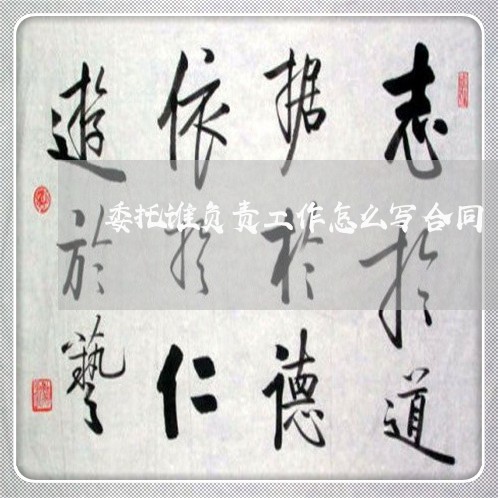 志於道
据於德
依於仁
遊於藝
委托谁负责工作怎么写合同